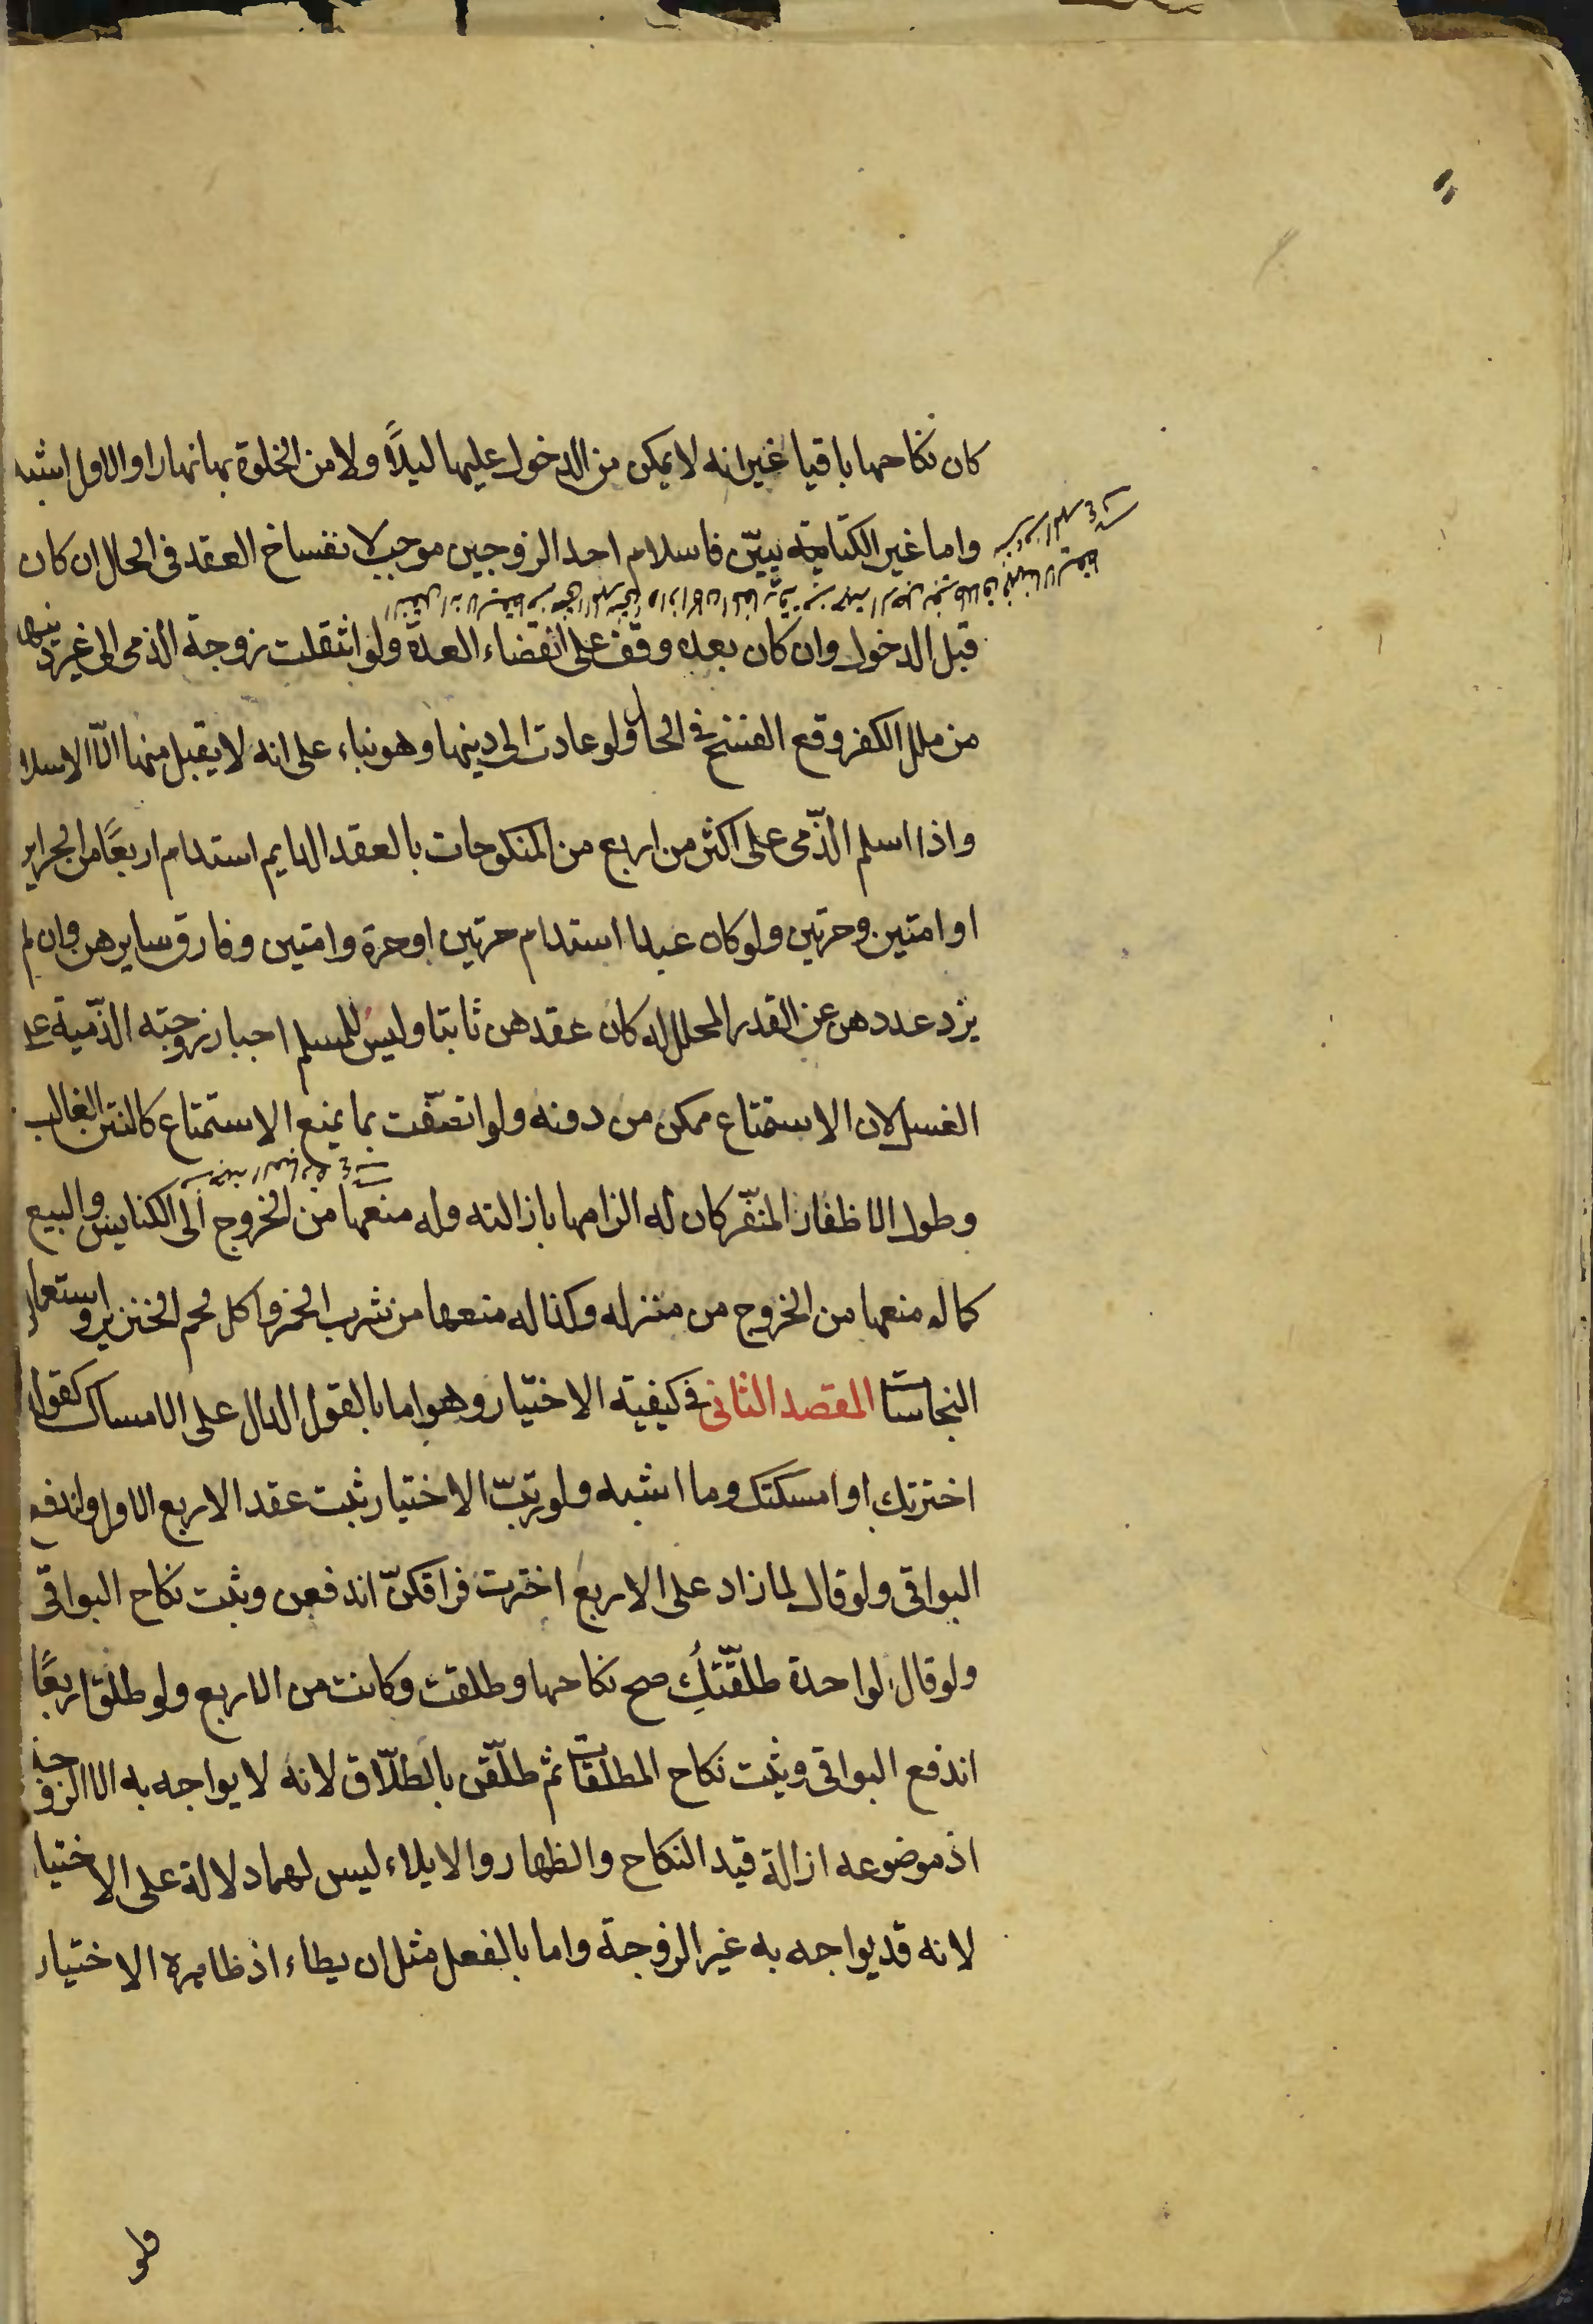 كان نكاحها باقيا غير انه لا يمكن من الدخول عليها ليلاً ولا من الخلوة بها نهارا والاول اشبه
واما غير الكتابيين فاسلام احد الزوجين موجب لانفساخ العقد فى الحال ان كان
قبل الدخول وان كان بعده وقف على انقضاء العدة ولو انتقلت زوجة الذمى الى غير دينها
من ملل الكفر وقع الفسخ فى الحال ولو عادت الى دينها وهو بناء على انه لا يقبل منها الّا الاسلا
واذا اسلم الذّمى على اكثر من اربع من المنكوحات بالعقد الدايم استدام اربعًا من الحراير
او امتين وحرتين ولو كان عبدا استدام حرتين او حرة وامتين وفارق سايرهن وان لم
يزد عددهن عن القدر المحلل له كان عقدهن ثابتا وليس للمسلم اجبار زوجته الذّمية على
الغسل لان الاستمتاع ممكن من دونه ولو اتصّفت بما يمنع الاستمتاع كالنتن الغالب
وطول الاظفار المنفّر كان له الزامها بازالته وله منعها من الخروج الى الكنايس والبيع
كما له منعها من الخروج من منزله وكذا له منعها من شرب الخمر واكل لحم الخنزير واستعمار
النجاسات المقصد الثانى فى كيفيته الاختيار وهو اما بالقول الدال على الامساك كقوله
اخترتك او امسكتك وما اشبه ولو رتّب الاختيار ثبت عقد الاربع الاول واندفع
البواقى ولو قال لما زاد على الاربع اخترت فراقكنّ اندفعن وثبت نكاح البواقى
ولو قال لواحدة طلّقتكِ صح نكاحها وطلقت وكانت من الاربع ولو طلق اربعًا
اندفع البواقى وثبت نكاح المطلقات ثم طلّقن بالطّلاق لانه لا يواجه به الا الزوجة
اذ موضوعه ازالة قيد النكاح والظهار والايلاء ليس لهما دلالة على الاختيا
لانه قد يواجه به غير الزوجة واما بالفعل مثل ان يطاء اذ ظاهره الاختيار
ولو